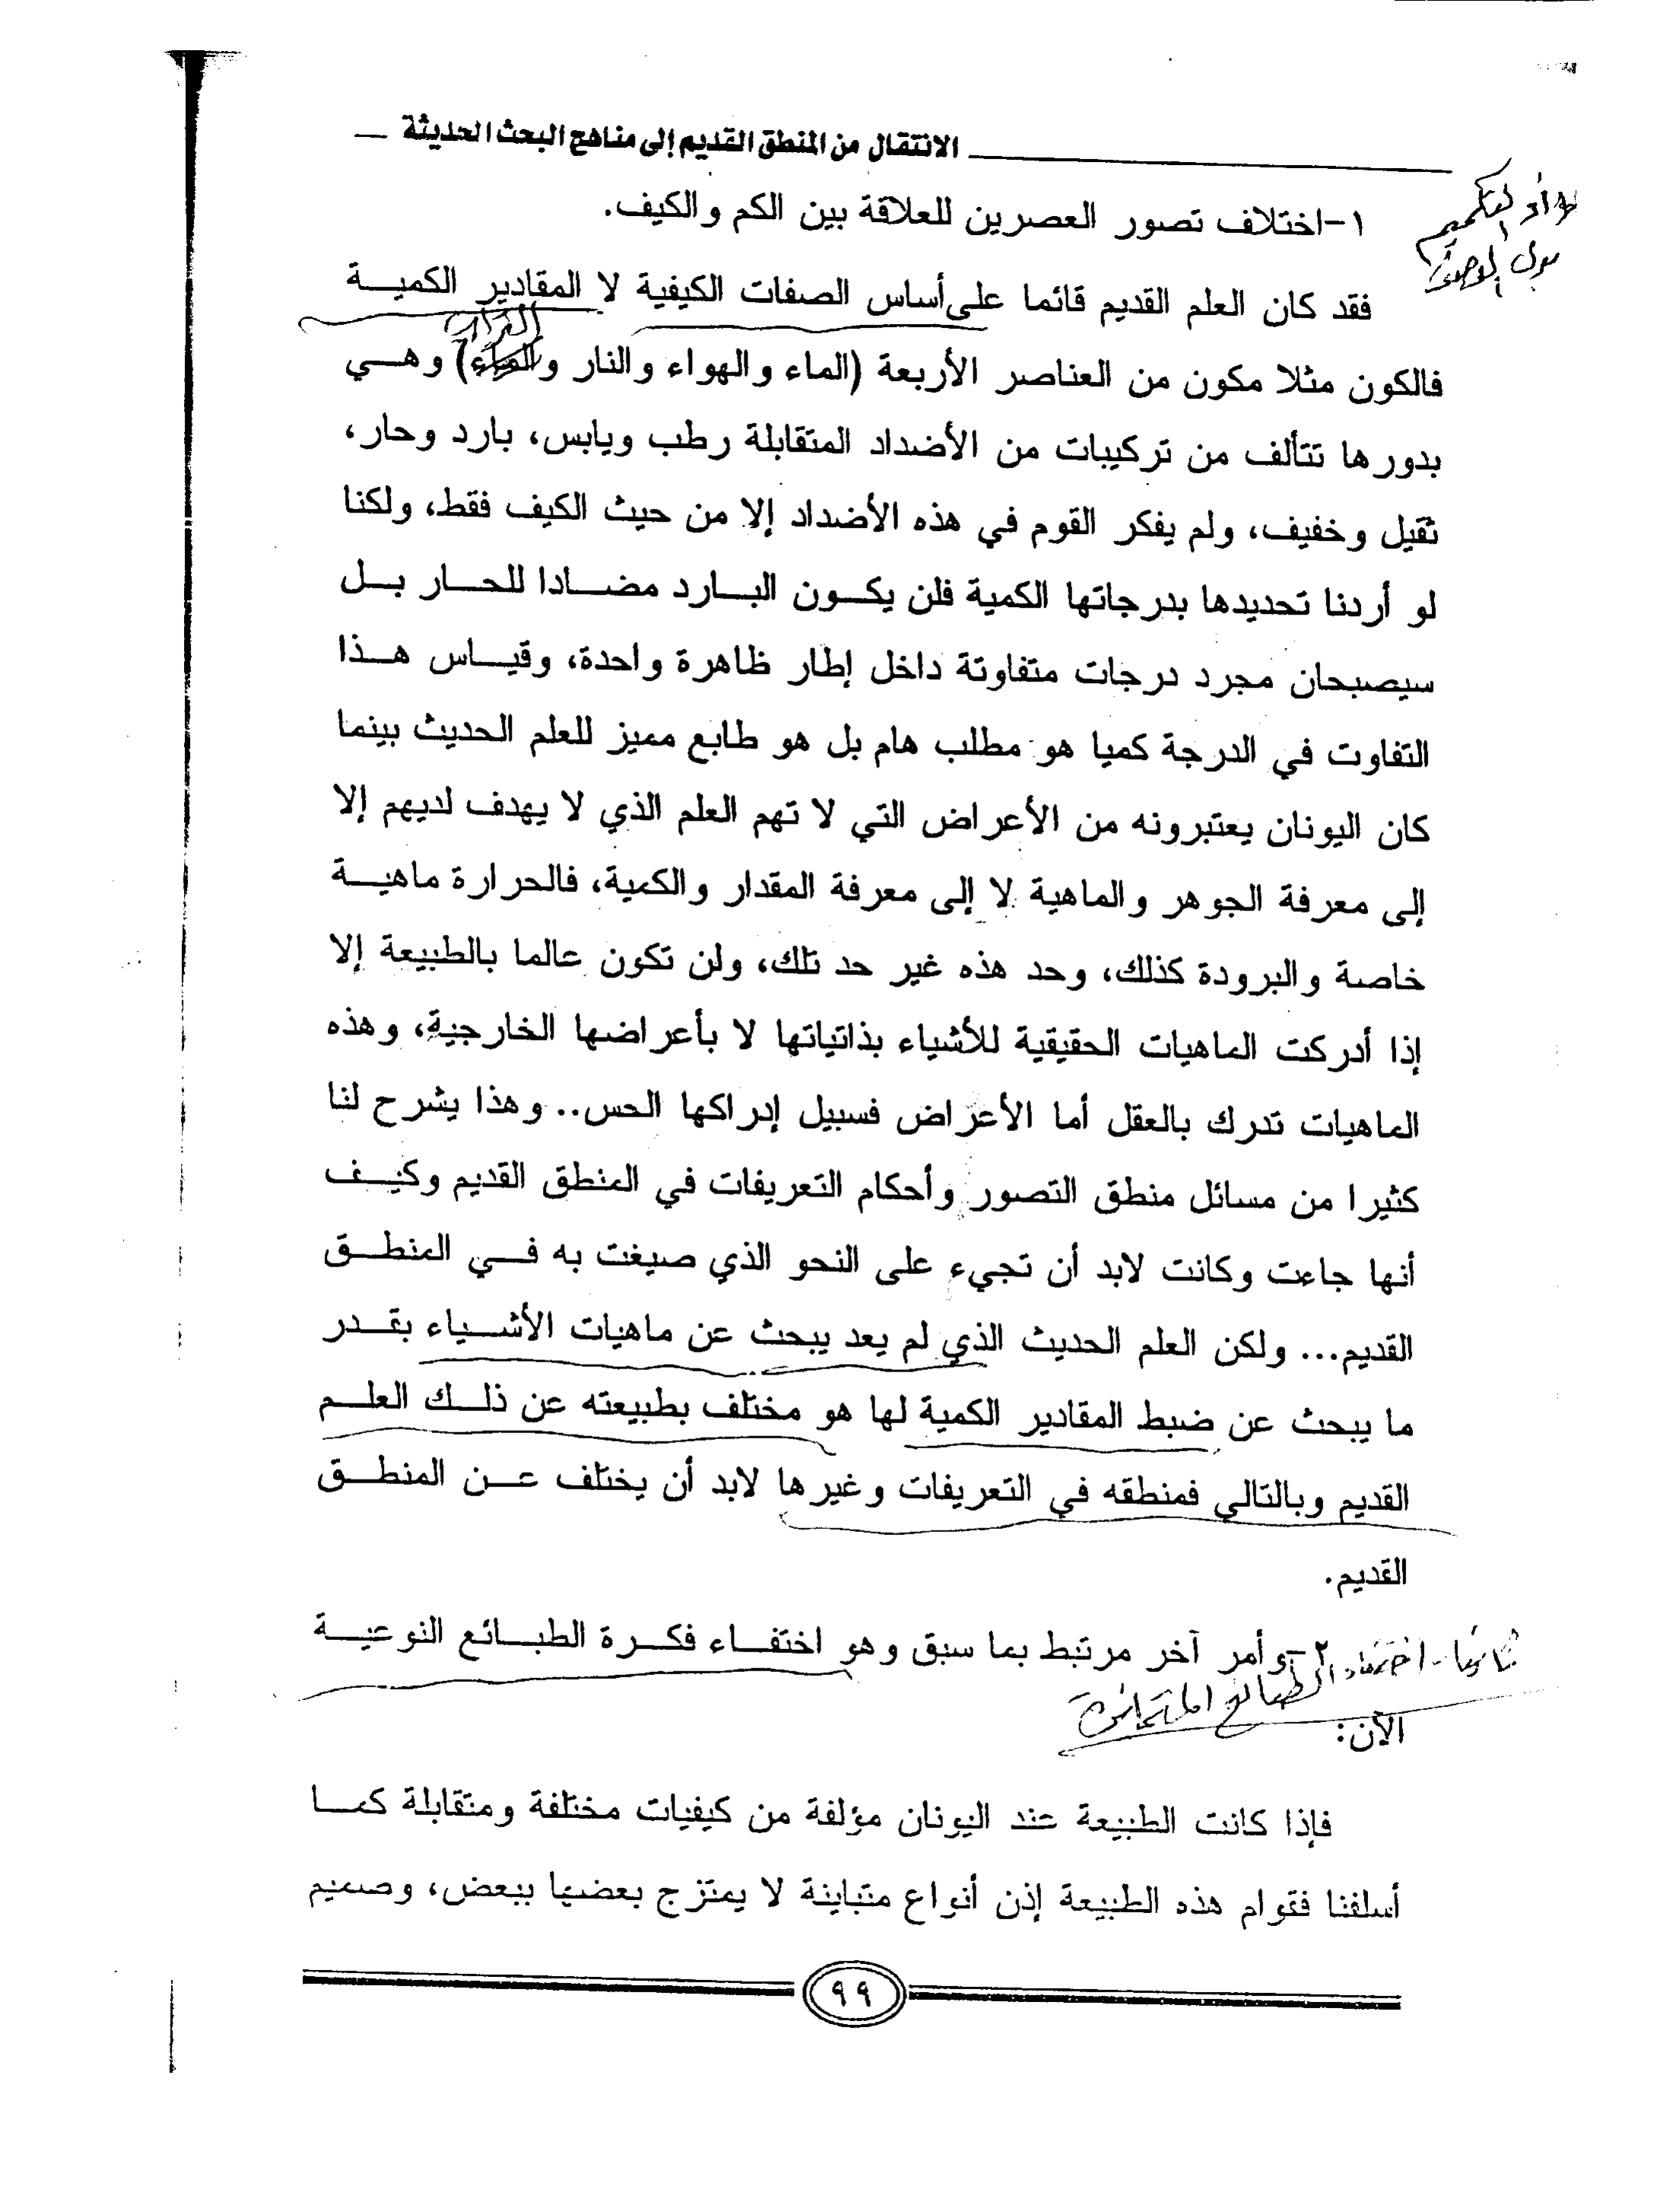 الانتقال من المنطق القديم إلى مناهج البحث الحديثة
١-اختلاف تصور العصرين للعلاقة بين الكم والكيف.
فقد كان العلم القديم قائما على أساس الصفات الكيفية لا المقادير الكميـــة
التراب
فالكون مثلا مكون من العناصر الأربعة (الماء والهواء والنار والماء) وهـــي
بدورها تتألف من تركيبات من الأضداد المتقابلة رطب ويابس، بارد وحار،
ثقيل وخفيف، ولم يفكر القوم في هذه الأضداد إلا من حيث الكيف فقط، ولكنا
لو أردنا تحديدها بدرجاتها الكمية فلن يكـــون البـــارد مضـــادا للحـــار بـــل
سيصبحان مجرد درجات متفاوتة داخل إطار ظاهرة واحدة، وقيـــاس هـــذا
التفاوت في الدرجة كميا هو مطلب هام بل هو طابع مميز للعلم الحديث بينما
كان اليونان يعتبرونه من الأعراض التي لا تهم العلم الذي لا يهدف لديهم إلا
إلى معرفة الجوهر والماهية لا إلى معرفة المقدار والكمية، فالحرارة ماهيـــة
خاصة والبرودة كذلك، وحد هذه غير حد تلك، ولن تكون عالما بالطبيعة إلا
إذا أدركت الماهيات الحقيقية للأشياء بذاتياتها لا بأعراضها الخارجية، وهذه
الماهيات تدرك بالعقل أما الأعراض فسبيل إدراكها الحس.. وهذا يشرح لنا
كثيرا من مسائل منطق التصور وأحكام التعريفات في المنطق القديم وكيـــف
أنها جاءت وكانت لابد أن تجيء على النحو الذي صيغت به فـــي المنطـــق
القديم... ولكن العلم الحديث الذي لم يعد يبحث عن ماهيات الأشـــياء بقـــدر
ما يبحث عن ضبط المقادير الكمية لها هو مختلف بطبيعته عن ذلـــك العلـــم
القديم وبالتالي فمنطقه في التعريفات وغيرها لابد أن يختلف عـــن المنطـــق
القديم.
٢-وأمر آخر مرتبط بما سبق وهو اختفـــاء فكـــرة الطبـــائع النوعيـــة
ثانيا - اختفاء الطبائع المتمايزة
الآن:
فإذا كانت الطبيعة عند اليونان مؤلفة من كيفيات مختلفة ومتقابلة كمـــا
أسلفنا فقوام هذه الطبيعة إذن أنواع متباينة لا يمتزج بعضها ببعض، وصميم
٩٩